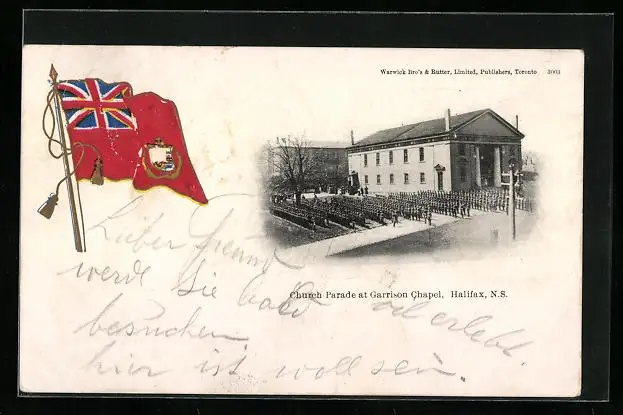 Warwick Bro's & Rutter, Limited, Publishers, Toronto 3003
Church Parade at Garrison Chapel, Halifax, N.S.
Lieber Freund
werde Sie bald
besuchen
hier ist